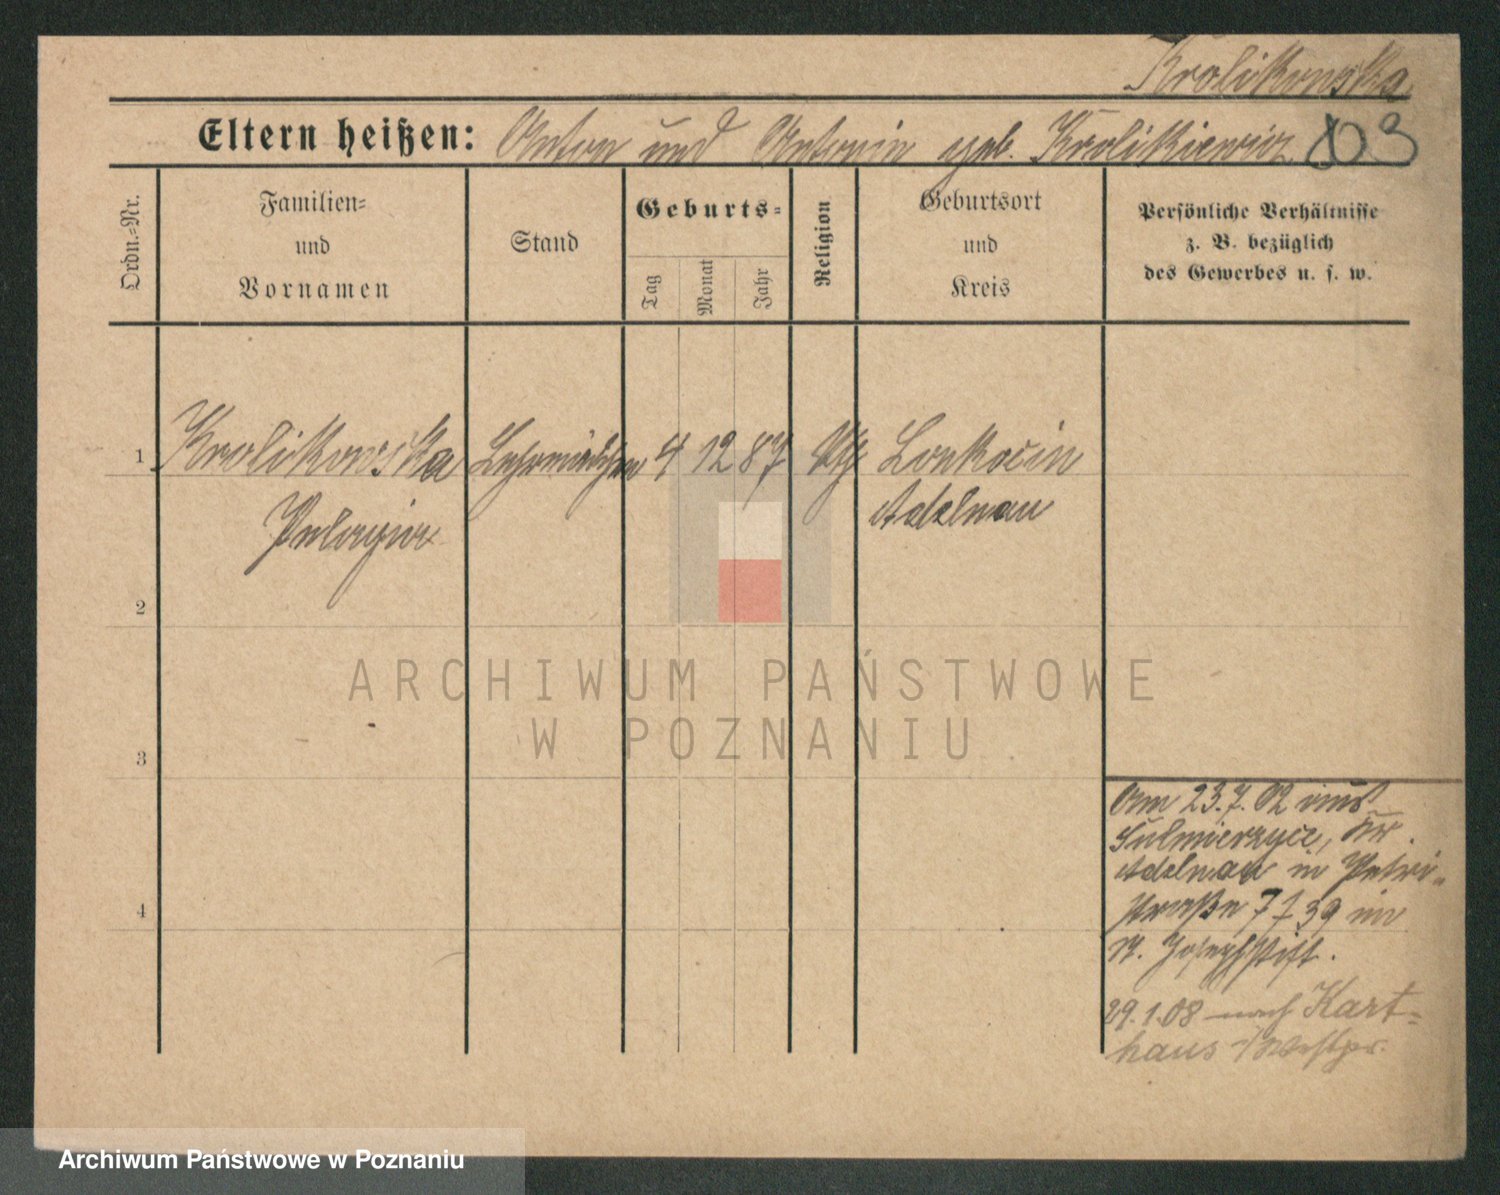 Krolikowska
Eltern heißen: Anton und Antonin geb. Krolikiewicz 03
Ordn.-Nr.
Familien-
und
Vornamen
Stand
Geburts-
Tag
Monat
Jahr
Religion
Geburtsort
und
Kreis
Persönliche Verhältnisse
z. B. bezüglich
des Gewerbes u. s. w.
1 Krolikowska Lehrmädchen 4 12 87 kth Lonkocin
Pelagia Adelnau
2
3
4
Am 23.7.02 aus
Sulmierzyce, Kr.
Adelnau in Petri-
straße 7 f 39 im
St. Josephstift.
29.1.08 nach Kart-
haus i/Westpr.
ARCHIWUM PAŃSTWOWE
W POZNANIU
Archiwum Państwowe w Poznaniu